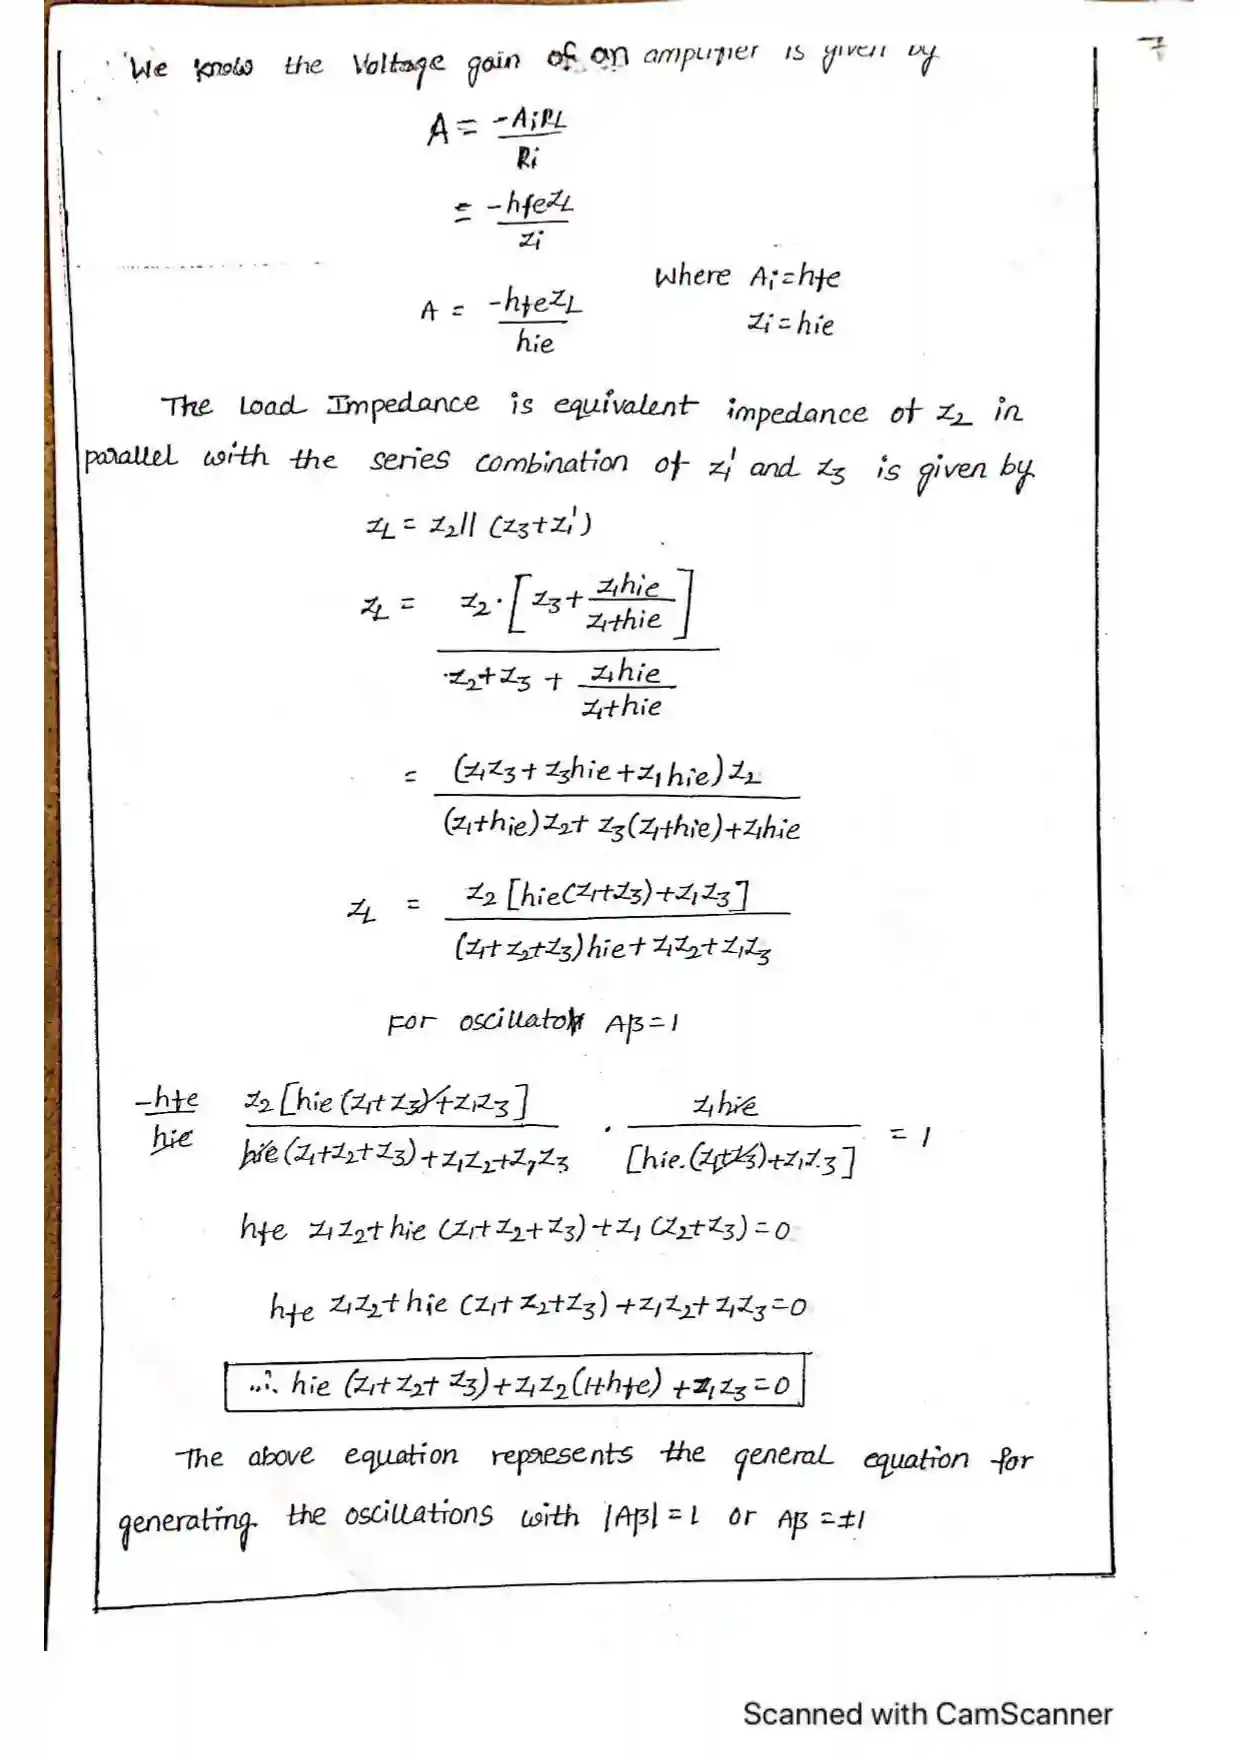 We know the Voltage gain of an amplifier is given by
A = -AiRL / Ri
= -hfeZL / Zi
Where Ai = hfe
A = -hfeZL / hie
Zi = hie
The Load Impedance is equivalent impedance of Z2 in
parallel with the series combination of Zi' and Z3 is given by
ZL = Z2 || (Z3+Zi')
ZL = Z2 · [Z3 + Z1hie / Z1+hie] / Z2+Z3 + Z1hie / Z1+hie
= (Z1Z3 + Z3hie + Z1hie) Z2 / (Z1+hie)Z2 + Z3(Z1+hie) + Z1hie
ZL = Z2 [hie(Z1+Z3)+Z1Z3] / (Z1+Z2+Z3)hie + Z1Z2 + Z1Z3
For oscillator Aβ = 1
-hfe / hie Z2[hie(Z1+Z3)+Z1Z3] / hie(Z1+Z2+Z3)+Z1Z2+Z1Z3 · Z1hie / [hie.(Z1+Z3)+Z1Z3] = 1
hfe Z1Z2 + hie (Z1+Z2+Z3) + Z1 (Z2+Z3) = 0
hfe Z1Z2 + hie (Z1+Z2+Z3) + Z1Z2 + Z1Z3 = 0
∴ hie (Z1+Z2+Z3) + Z1Z2(1+hfe) + Z1Z3 = 0
The above equation represents the general equation for
generating the oscillations with |Aβ| = 1 or Aβ = ±1
Scanned with CamScanner